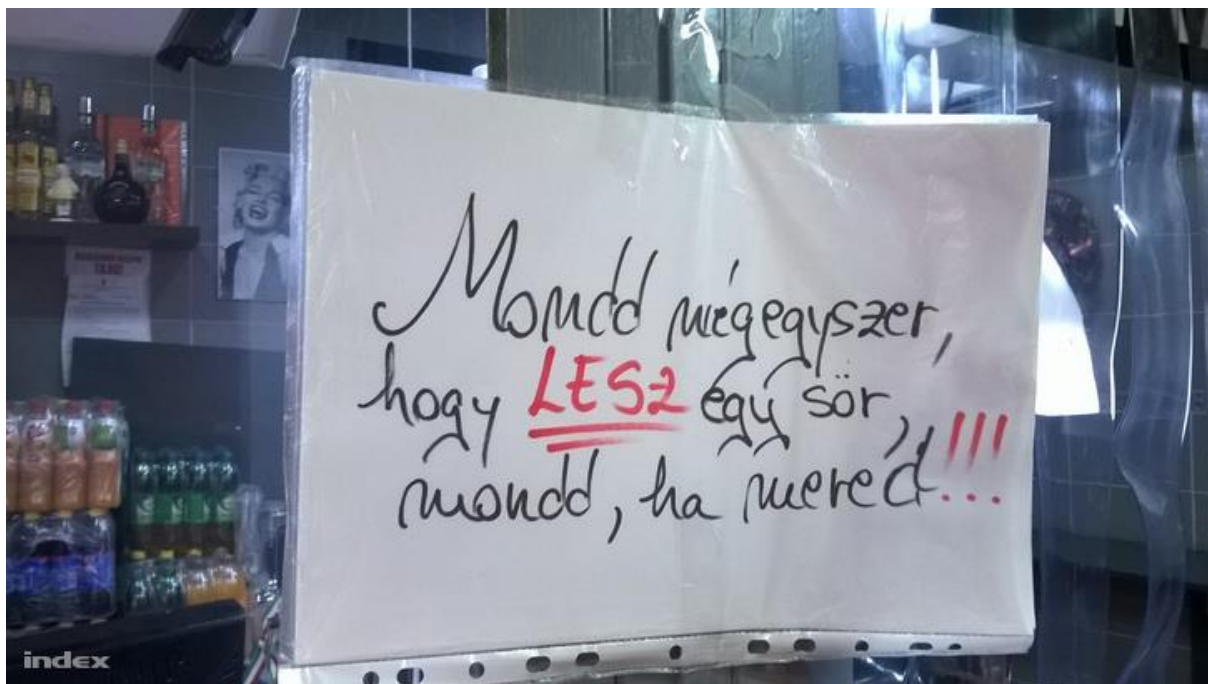 Mondd mégegyszer,
hogy LESZ egy sör,
mondd, ha mered!!!
index